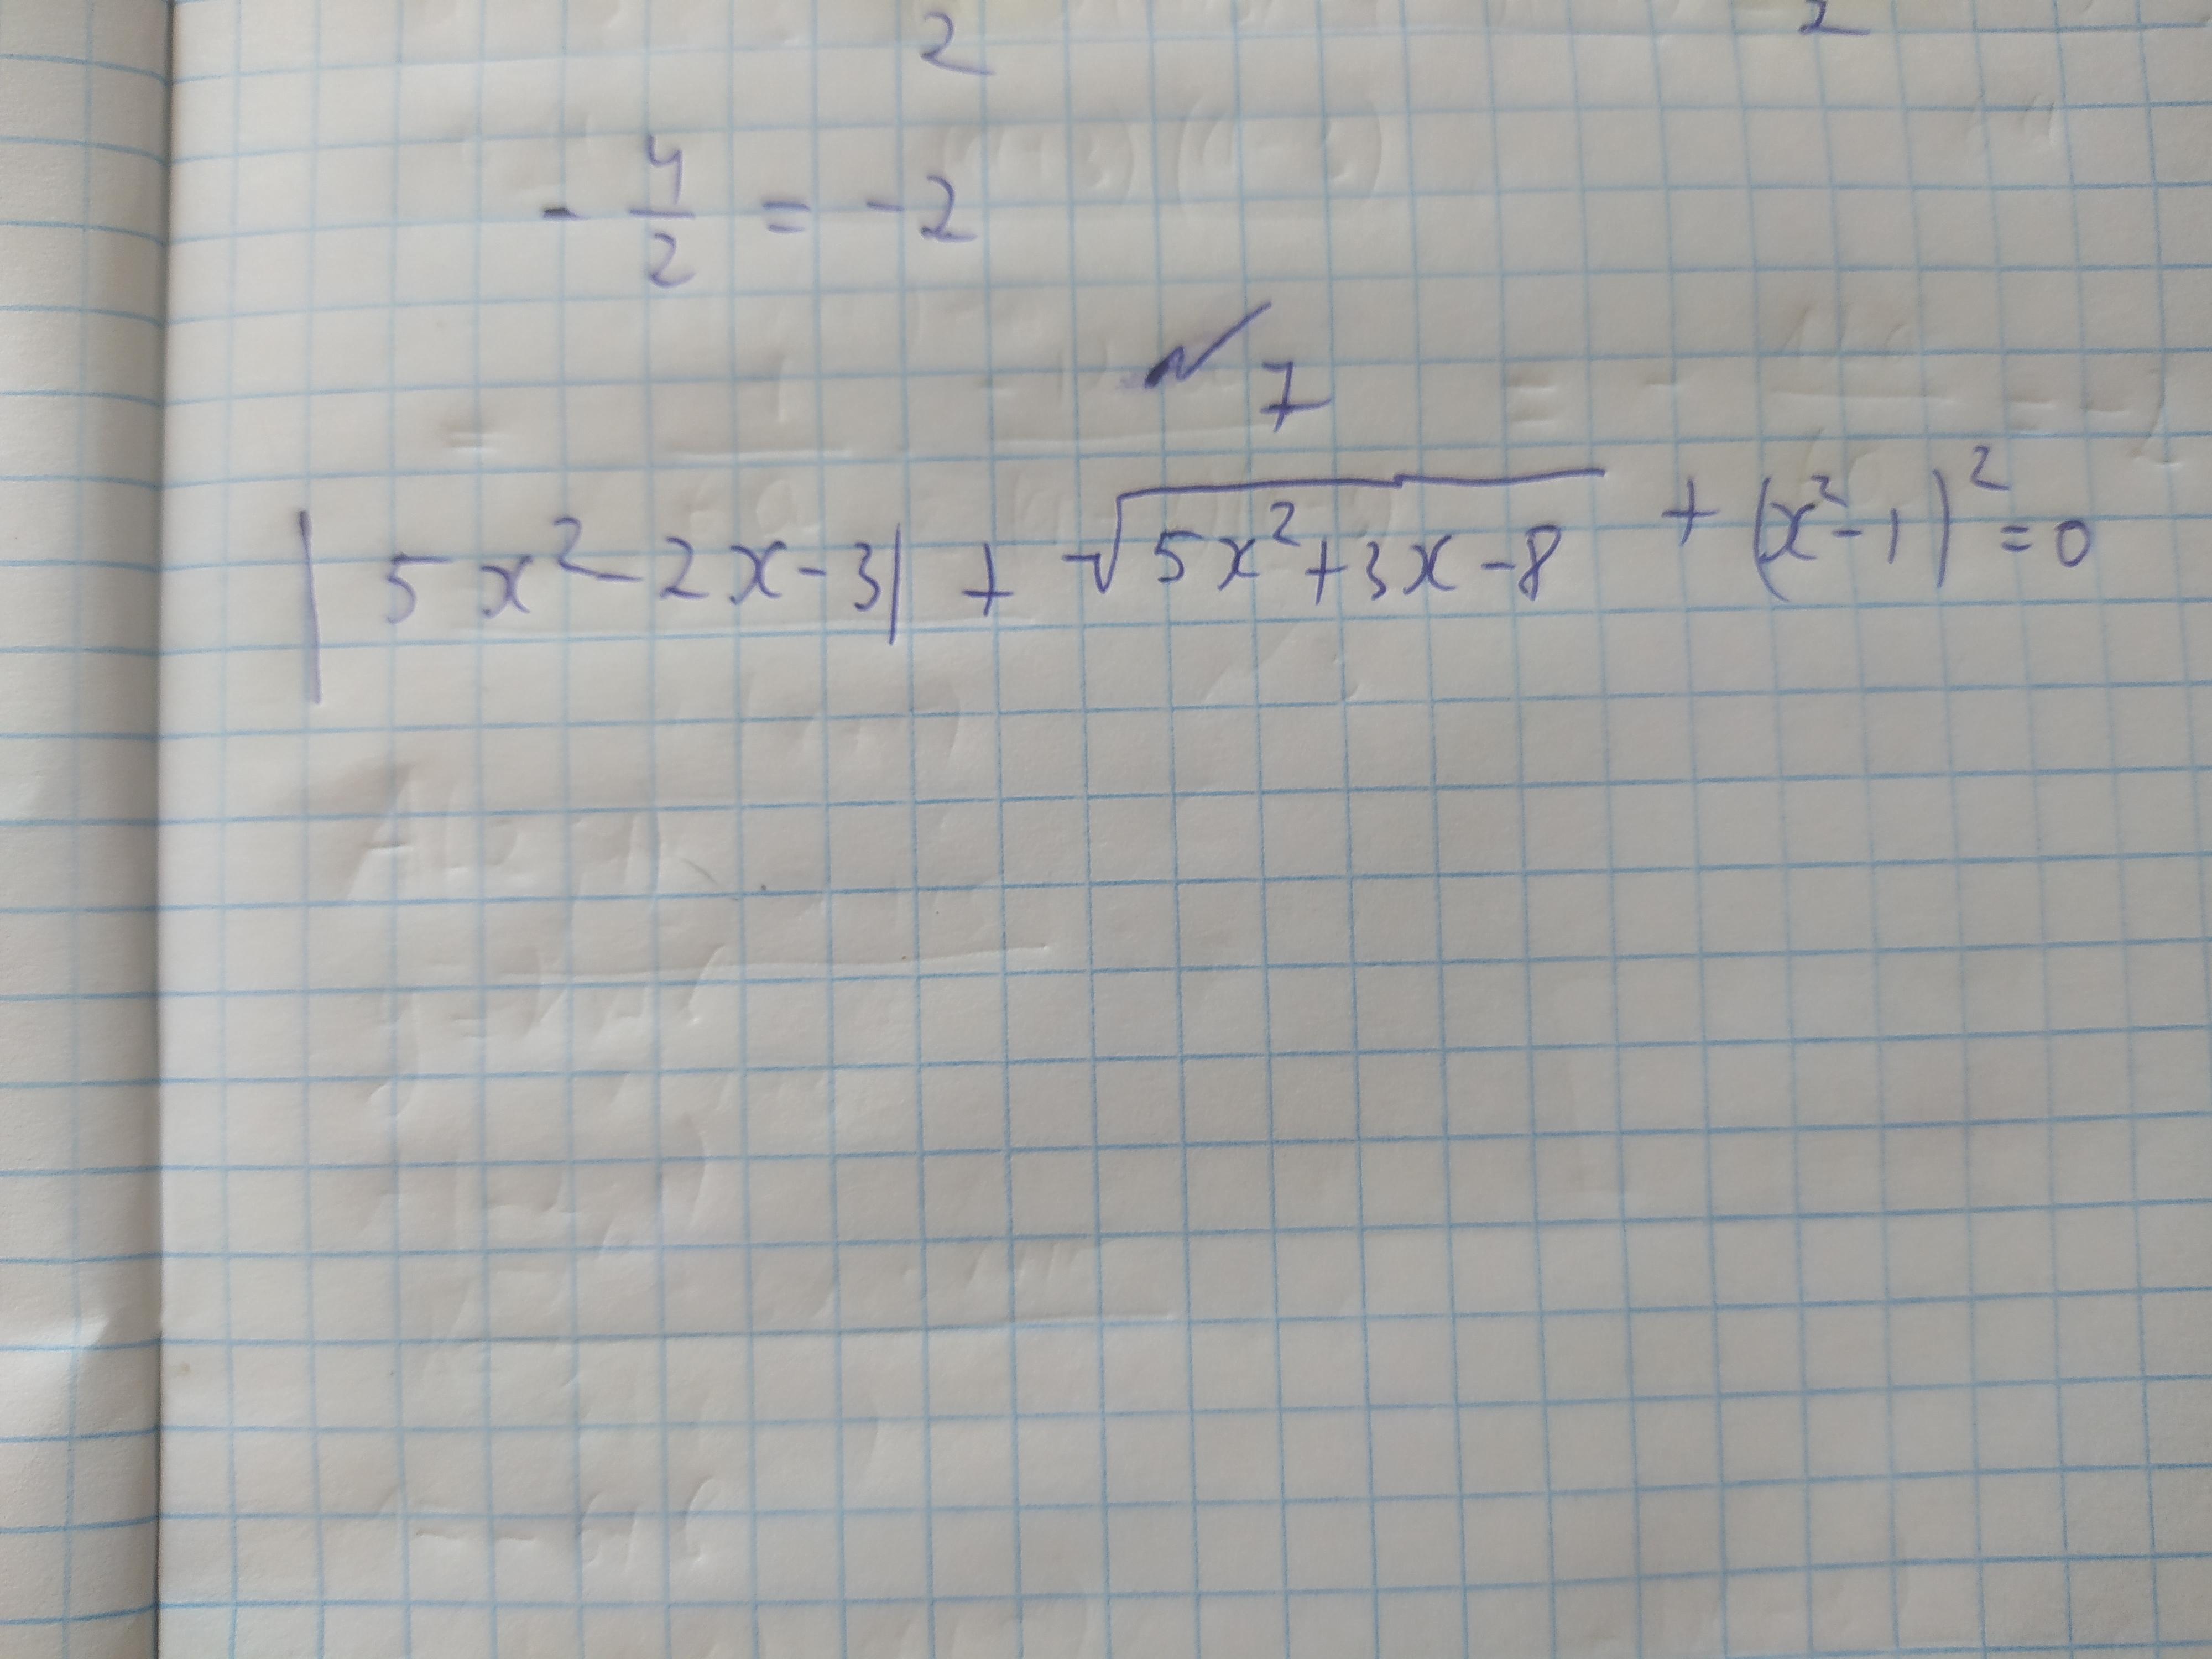 2 2
- 4/2 = -2
№ 7
|5x² - 2x - 3| + √(5x² + 3x - 8) + (x² - 1)² = 0